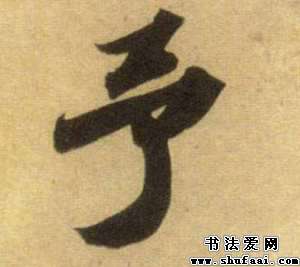 予
书法爱网
www.shufaai.com